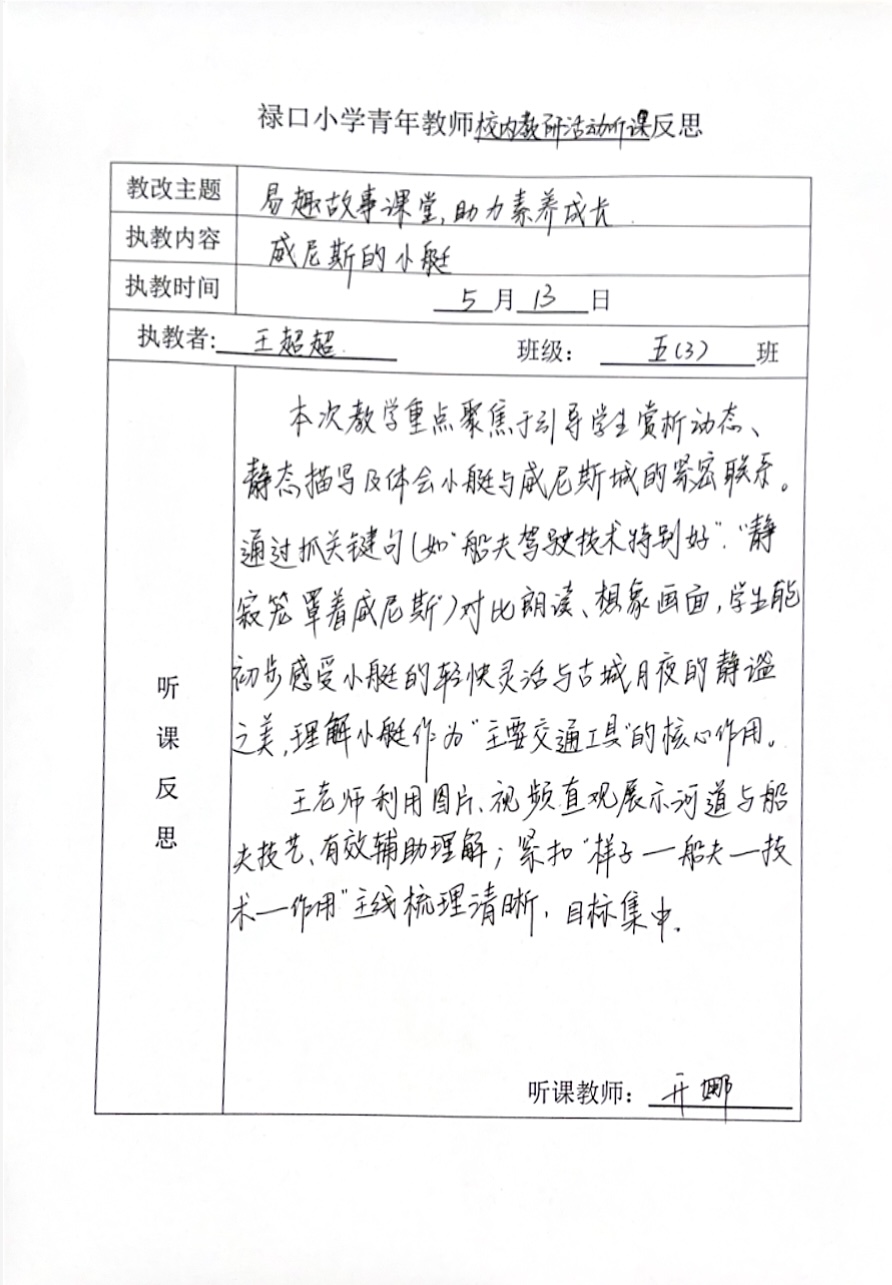 禄口小学青年教师校内教研活动听课反思
教改主题 易趣故事课堂,助力素养成长.
执教内容 威尼斯的小艇
执教时间 5月13日
执教者:王超超. 班级：五(3)班
本次教学重点聚焦于引导学生赏析动态、
静态描写及体会小艇与威尼斯城的紧密联系。
通过抓关键句(如“船夫驾驶技术特别好”.“静
寂笼罩着威尼斯”)对比朗读、想象画面,学生能
初步感受小艇的轻快灵活与古城月夜的静谧
之美,理解小艇作为“主要交通工具”的核心作用。
王老师利用图片、视频直观展示河道与船
夫技艺、有效辅助理解；紧扣“样子—船夫—技
术—作用”主线梳理清晰，目标集中.
听课反思
听课教师：亓娜